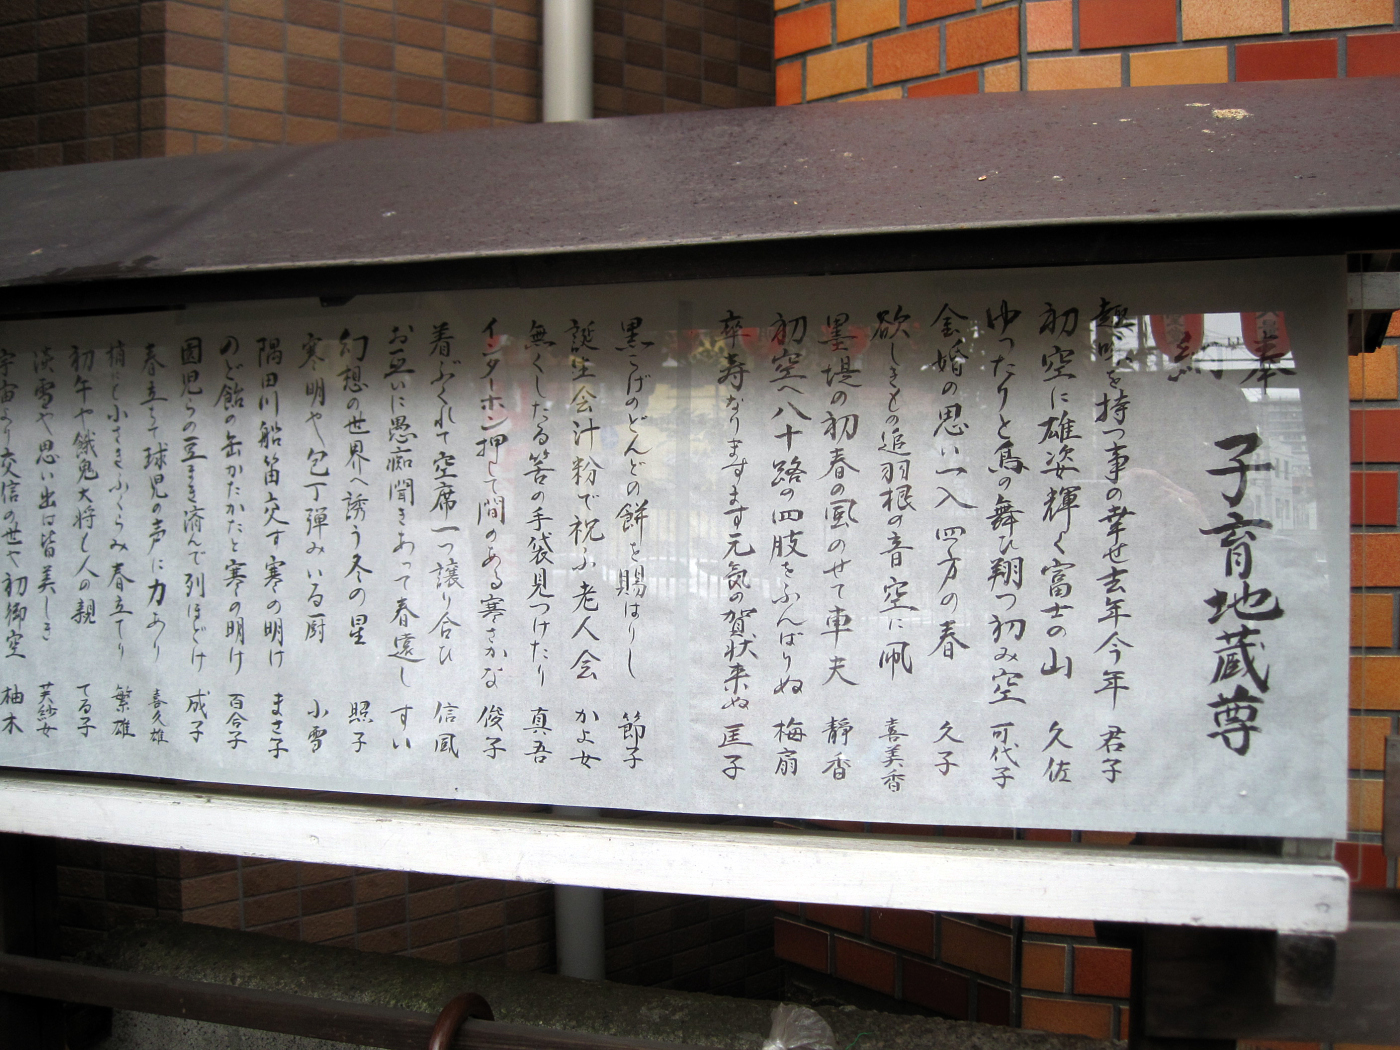 奉納
子育地蔵尊
趣味を持つ事の幸せ去年今年 君子
初空に雄姿輝く富士の山 久佐
ゆったりと鳥の舞ひ翔つ初み空 可代子
金婚の思い一入四方の春 久子
欲しきもの追羽根の音空に凧 喜美香
墨堤の初春の風のせて車夫 靜香
初空へ八十路の四肢をふんばりぬ 梅扇
卒寿なりますます元気の賀状来ぬ 匡子
黒こげのどんどの餅を賜はりし 節子
誕生会汁粉で祝ふ老人会 かよ女
無くしたる筈の手袋見つけたり 真吾
インターホン押して間のある寒さかな 俊子
着ぶくれて空席一つ譲り合ひ 信風
お互いに愚痴聞きあって春遠し すい
幻想の世界へ誘う冬の星 照子
寒明や包丁弾みいる厨 小雪
隅田川船笛交す寒の明け まさ子
のど飴の缶かたかたと寒の明け 百合子
園児らの豆まき済んで列ほどけ 成子
春立ちて球児の声に力あり 喜久雄
梢に小さきふくらみ春立てり 繁雄
初午や餓鬼大将も人の親 てる子
淡雪や思い出は皆美しき 芙紗女
宇宙より交信の世や初御空 柚木